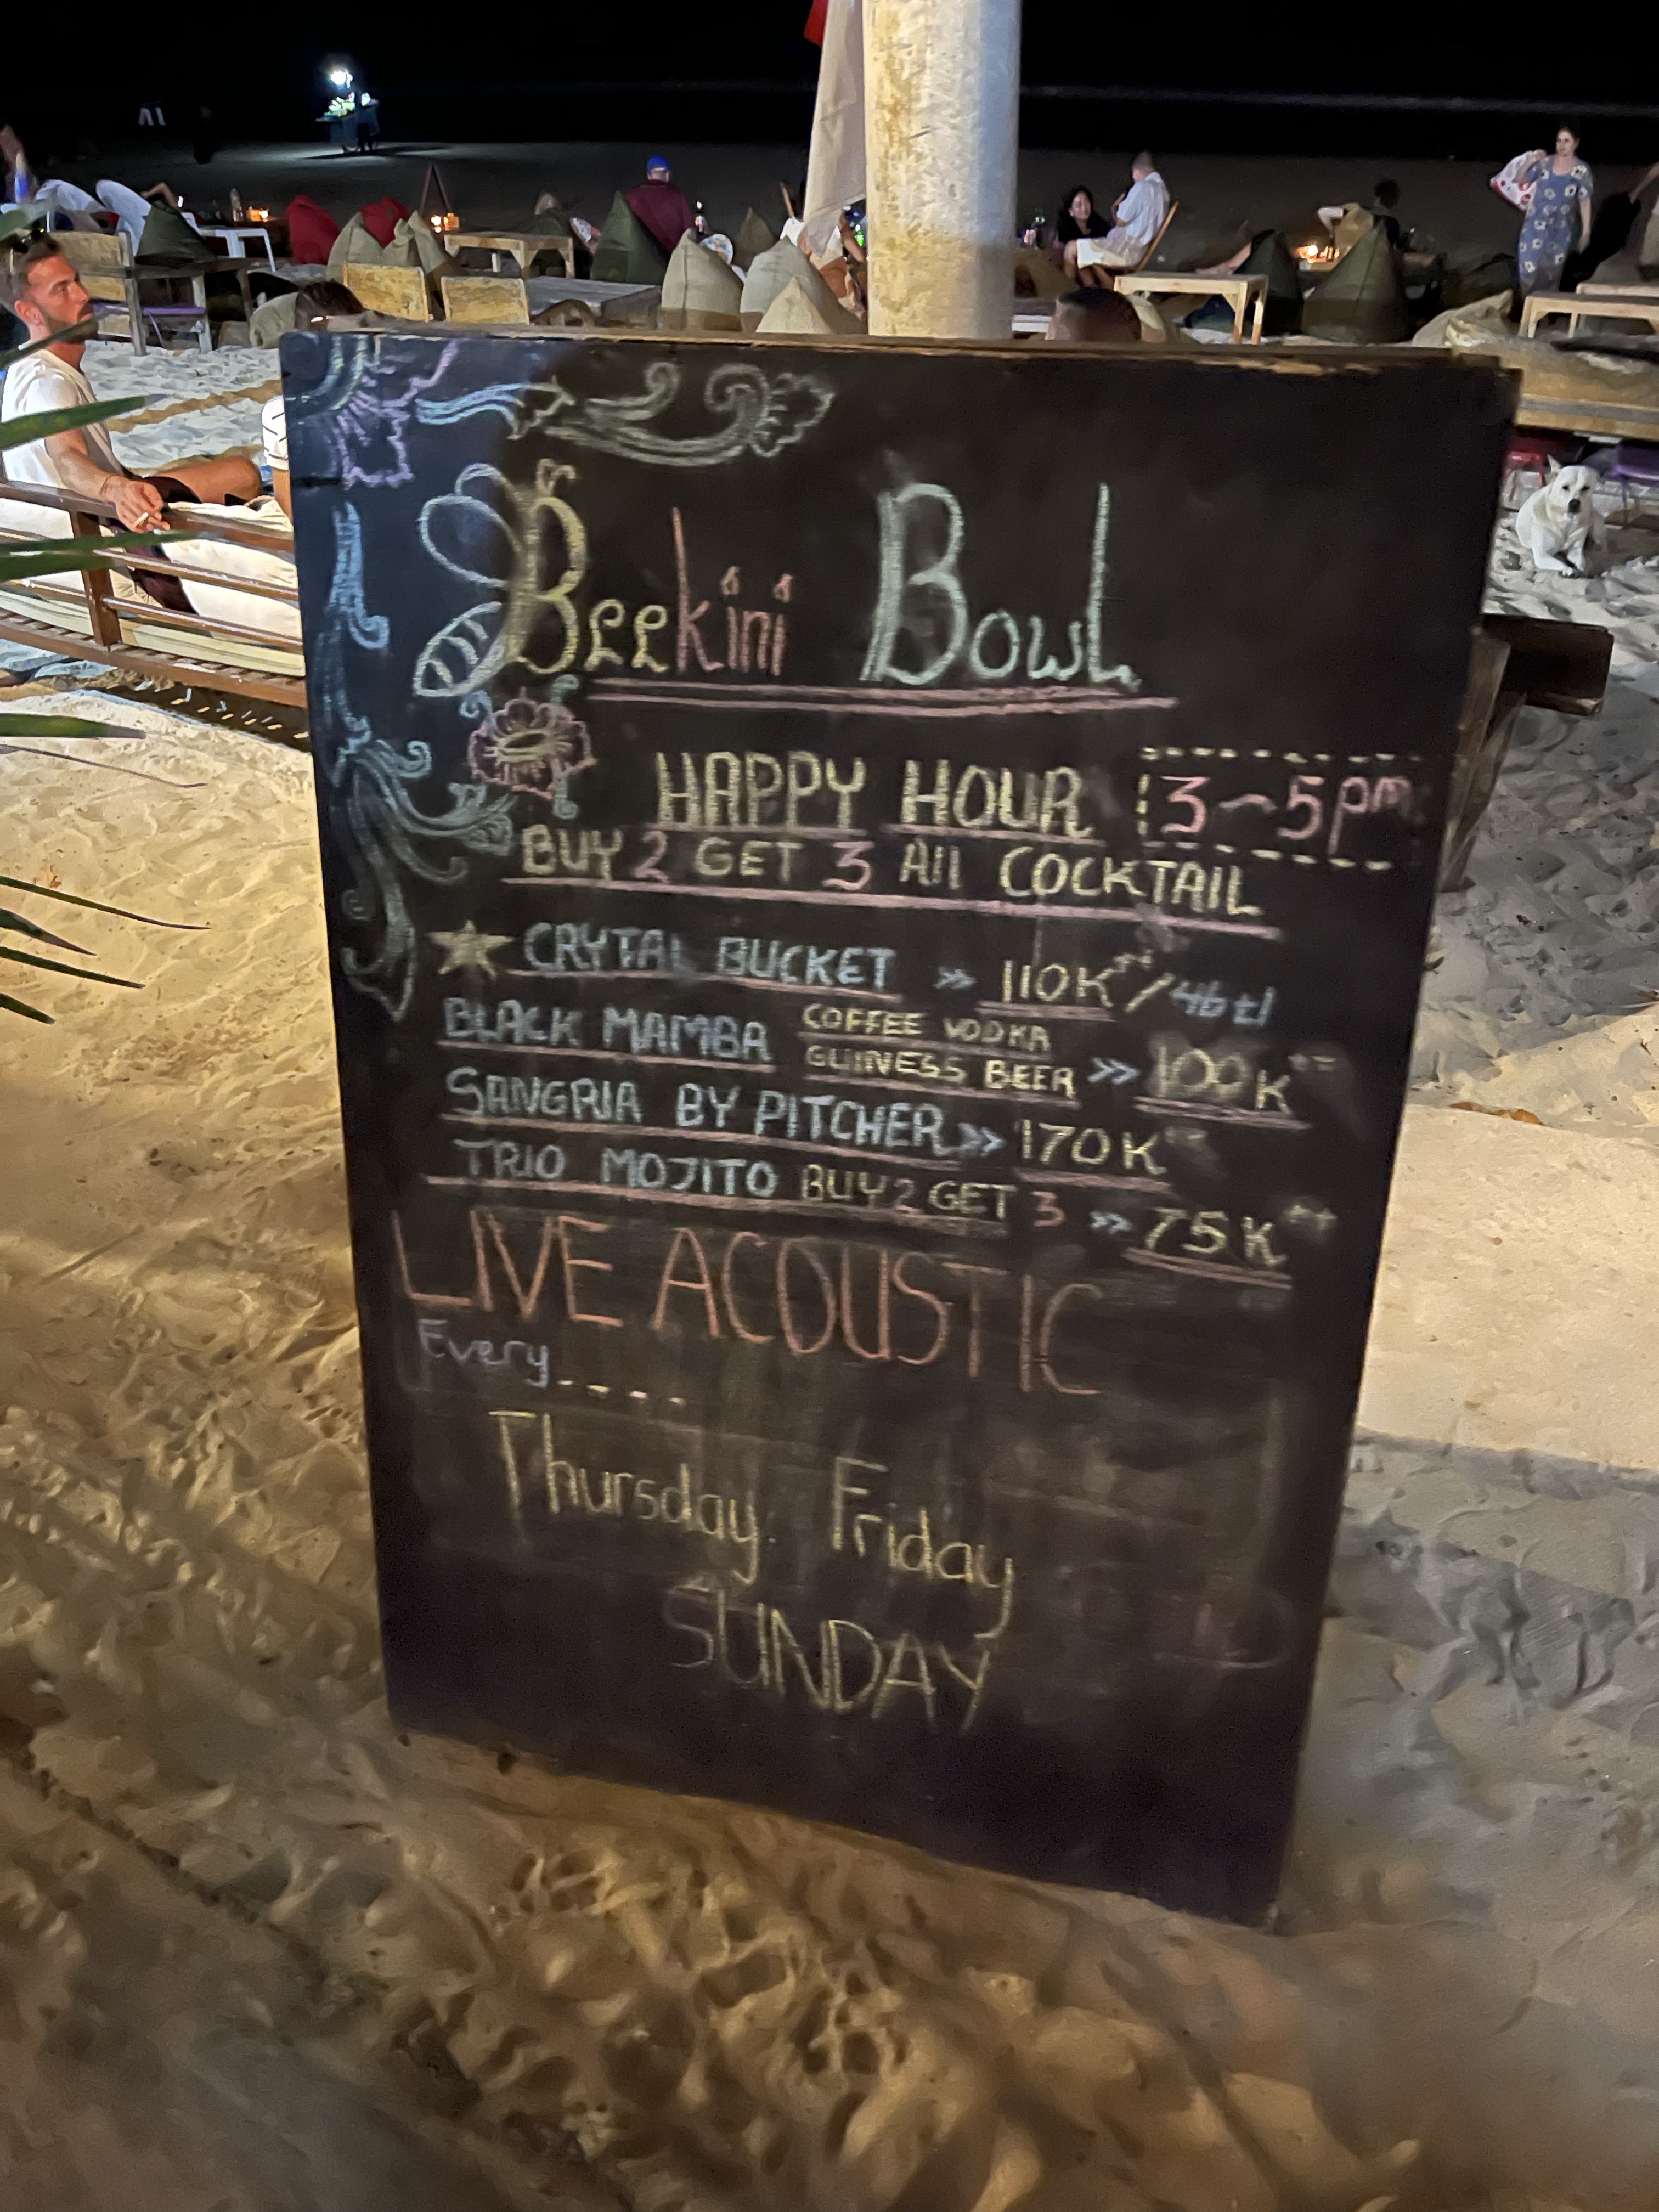 Beekini Bowl
HAPPY HOUR 3~5pm
BUY 2 GET 3 All COCKTAIL
CRYTAL BUCKET >> 110K++/4btl
BLACK MAMBA COFFEE VODKA
GUINESS BEER >> 100K++
SANGRIA BY PITCHER >> 170K++
TRIO MOJITO BUY 2 GET 3 >> 75K++
LIVE ACOUSTIC
Every....
Thursday. Friday
SUNDAY